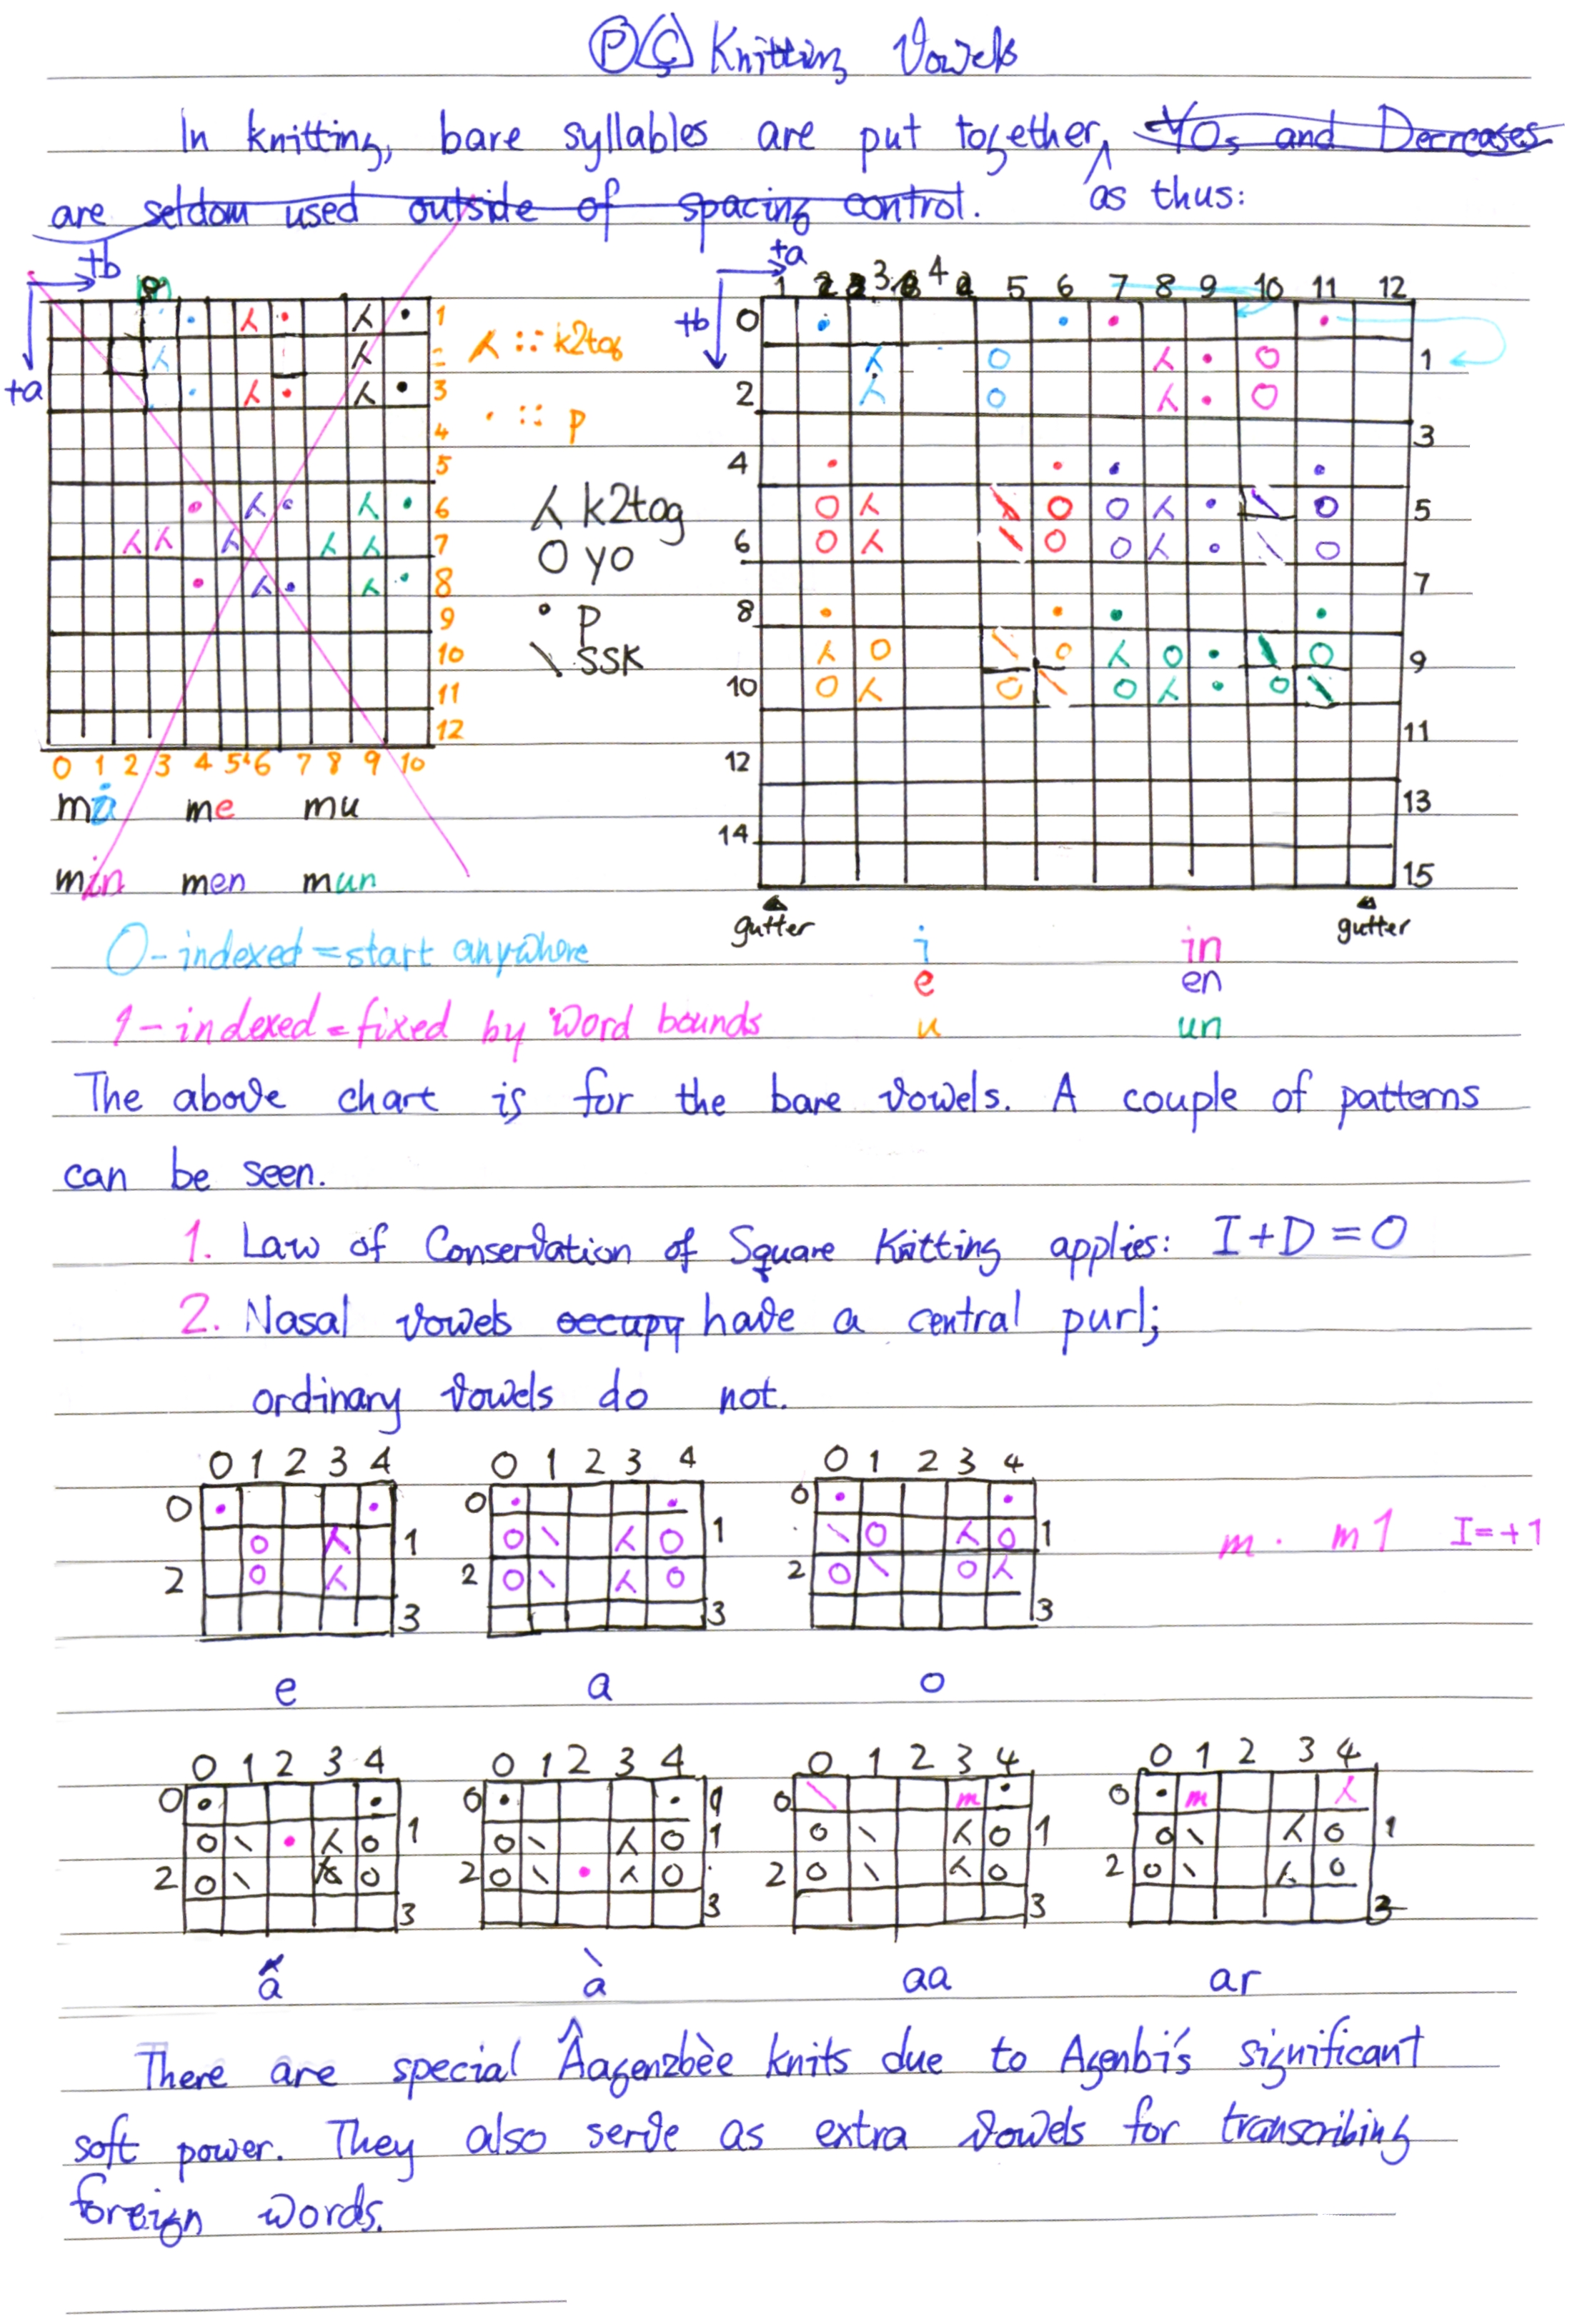 Ⓟ Ç Knitting Vowels
In knitting, bare syllables are put together, YOs and Decreases
are seldom used outside of spacing control. as thus:
+b
+a
1
2
3
4
5
6
7
8
9
10
11
12
0 1 2 3 4 5 6 7 8 9 10
⅄ :: k2tog
· :: p
⅄ k2tog
O yo
• p
\ ssk
mi me mu
min men mun
+a
+b
1 2 3 4 5 6 7 8 9 10 11 12
0
1
2
3
4
5
6
7
8
9
10
11
12
13
14
15
gutter gutter
i in
e en
u un
0-indexed = start anywhere
1-indexed = fixed by word bounds
The above chart is for the bare vowels. A couple of patterns
can be seen.
1. Law of Conservation of Square Knitting applies: I+D=0
2. Nasal vowels occupy have a central purl;
ordinary vowels do not.
0 1 2 3 4 0 1 2 3 4 0 1 2 3 4
0 0 0
1 1 1
2 2 2
3 3 3
m · m1 I=+1
e a o
0 1 2 3 4 0 1 2 3 4 0 1 2 3 4 0 1 2 3 4
0 0 0 m 0 m
1 1 1 1
2 2 2 2
3 3 3 3
à aa ar
There are special Âagenzbèe knits due to Agenbi's significant
soft power. They also serve as extra vowels for transcribing
foreign words.